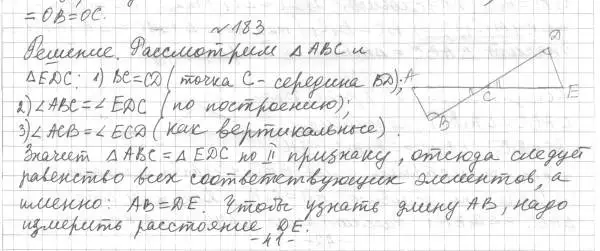 = OB = OC.
№ 183
Решение. Рассмотрим △ABC и
△EDC: 1) BC = CD (точка C - середина BD);
2) ∠ABC = ∠EDC (по построению);
3) ∠ACB = ∠ECD (как вертикальные).
Значит △ABC = △EDC по II признаку, отсюда следует
равенство всех соответствующих элементов, а
именно: AB = DE. Чтобы узнать длину AB, надо
измерить расстояние DE.
A
B
C
D
E
- 41 -